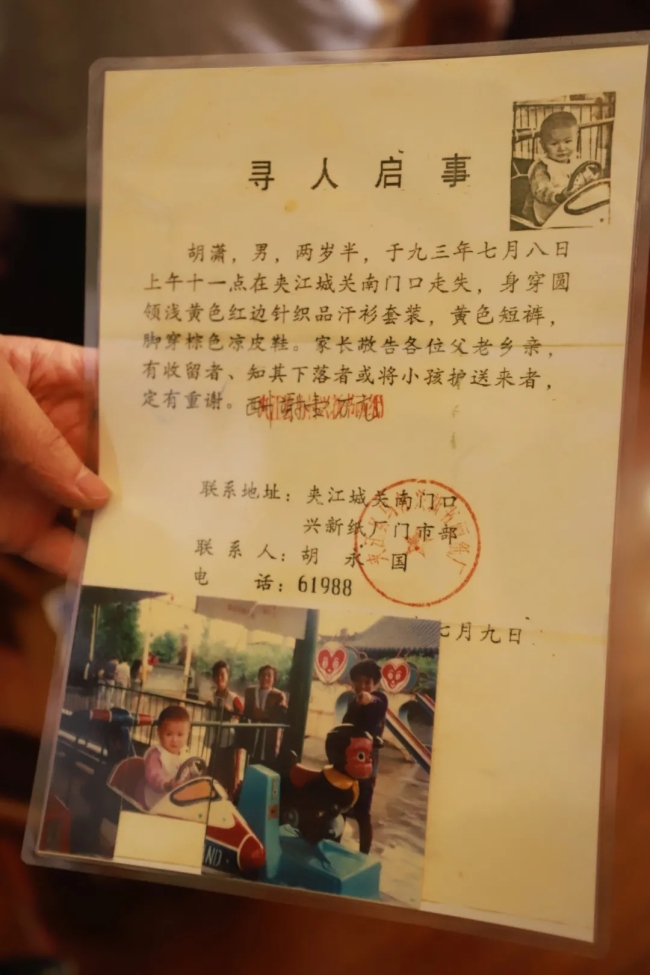 寻人启事
胡潇，男，两岁半，于九三年七月八日
上午十一点在夹江城关南门口走失，身穿圆
领浅黄色红边针织品汗衫套装，黄色短裤，
脚穿棕色凉皮鞋。家长敬告各位父老乡亲，
有收留者、知其下落者或将小孩护送来者，
定有重谢。
联系地址：夹江城关南门口
兴新纸厂门市部
联系人：胡永国
电话：61988
七月九日